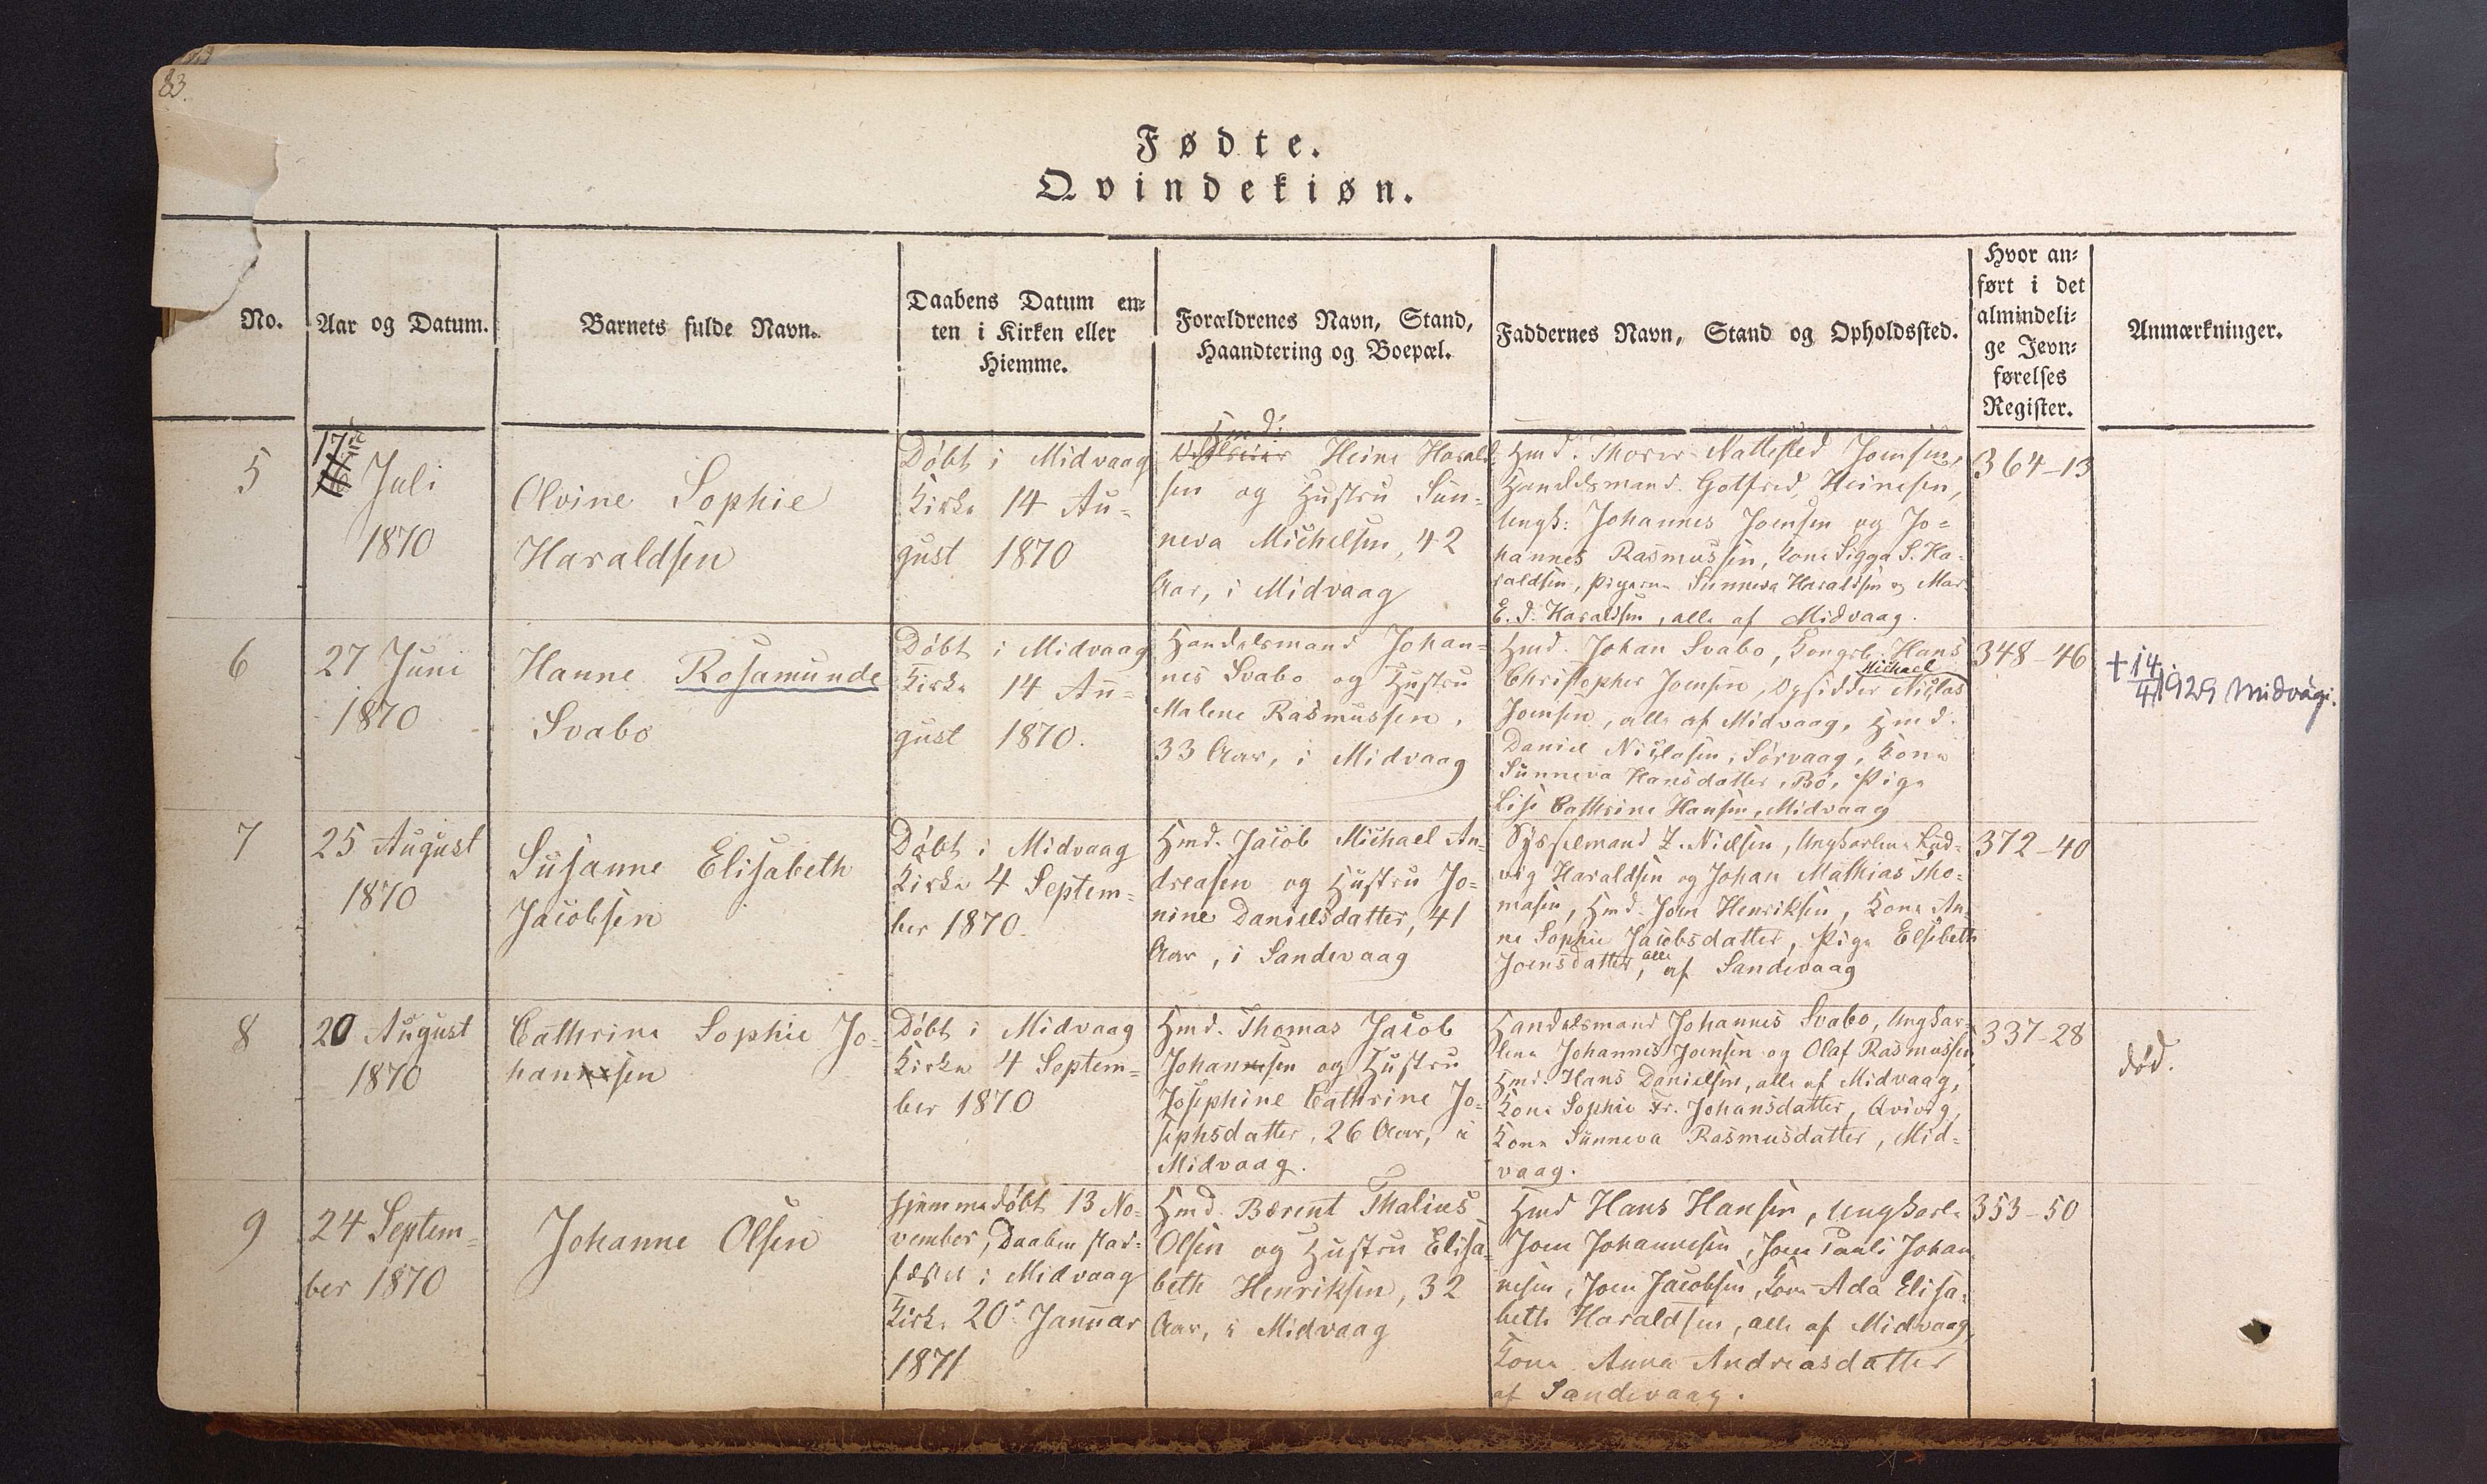 83.
Fødte.
Qvindekiøn.
No.
Aar og Datum.
Barnets fulde Navn.
Daabens Datum en-
ten i Kirken eller
Hiemme.
Forældrenes Navn, Stand,
Haandtering og Boepæl.
Faddernes Navn, Stand og Opholdssted.
Hvor an-
ført i det
almindeli-
ge Jevn-
førelses
Register.
Anmærkninger.
5
17
Juli
1870
Olvine Sophie
Haraldsen
Døbt i Midvaag
Kirke 14 Au-
gust 1870
Hmd.
Heine Harald-
sen og Hustru Sun-
neva Michelsen, 42
Aar, i Midvaag
Hmd. Thorer Nattested Joensen,
Handelsmand Gotfred Heinesen,
Ungk: Johannes Joensen og Jo-
hannes Rasmussen, Kone Sigga S. Ha-
raldsen, Pigerne Sunneva Haraldsen og Mar.
E. J. Haraldsen, alle af Midvaag.
364-13
6
27 Juni
1870
Hanne Rosamunde
Svabo
Døbt i Midvaag
Kirke 14 Au-
gust 1870.
Handelsmand Johan-
nes Svabo og Hustru
Malene Rasmussen,
33 Aar, i Midvaag
Hmd. Johan Svabo, Kongsb. Hans
Christopher Joensen, Opsidder Michael Niclas
Joensen, alle af Midvaag, Hmd.
Daniel Niclasen, Sørvaag, Kone
Sunneva Hansdatter, Bø, Pige
Lise Cathrine Hansen, Midvaag
348-46
+ 14/4 1929 Midvági.
7
25 August
1870
Susanne Elisabeth
Jacobsen
Døbt i Midvaag
Kirke 4 Septem-
ber 1870.
Hmd. Jacob Michael An-
dreasen og Hustru Jo-
nine Danielsdatter, 41
Aar, i Sandevaag
Sysselmand Z. Nielsen, Ungkarlene Lud-
vig Haraldsen og Johan Mathias Tho-
masen, Hmd. Joen Henriksen, Kone An-
ne Sophie Jacobsdatter, Pige Elsebeth
Joensdatter, alle af Sandevaag
372-40
8
20 August
1870
Cathrine Sophie Jo-
hannesen
Døbt i Midvaag
Kirke 4 Septem-
ber 1870
Hmd. Thomas Jacob
Johannesen og Hustru
Josephine Cathrine Jo-
sephsdatter, 26 Aar, i
Midvaag.
Handelsmand Johannes Svabo, Ungkar-
lene Johannes Joensen og Olaf Rasmussen,
Hmd. Hans Danielsen, alle af Midvaag,
Kone Sophie Fr. Johansdatter, Qvivig,
Kone Sunneva Rasmusdatter, Mid-
vaag.
337-28
død.
9
24 Septem-
ber 1870
Johanne Olsen
Hjemmedøbt 13 No-
vember, Daaben stad-
fæstet i Midvaag
Kirke 20. Januar
1871
Hmd. Bærent Thalius
Olsen og Hustru Elisa-
beth Henriksen, 32
Aar, i Midvaag
Hmd Hans Hansen, Ungkarle
Joen Johannesen, Joen Pauli Johan-
nesen, Joen Jacobsen, Kone Ada Elisa-
beth Haraldsen, alle af Midvaag,
Kone Anna Andreasdatter
af Sandevaag.
353-50